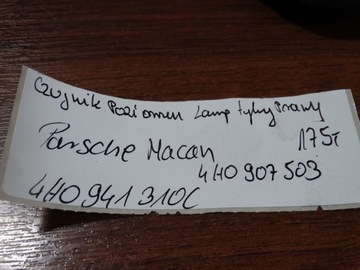 Czujnik Poziomu Lamp tylny Prawy
Porsche Macan 175r
4H0 907 503
4H0 941 310C